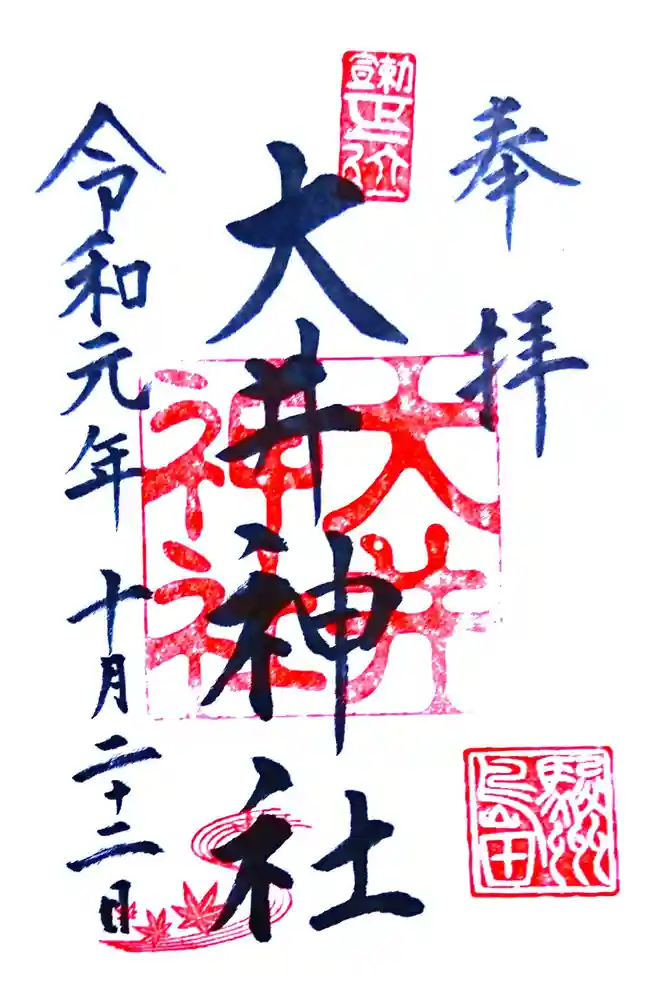 奉拝
勅宣正一位
大井神社
大井神社
駿州島田
令和元年十月二十二日